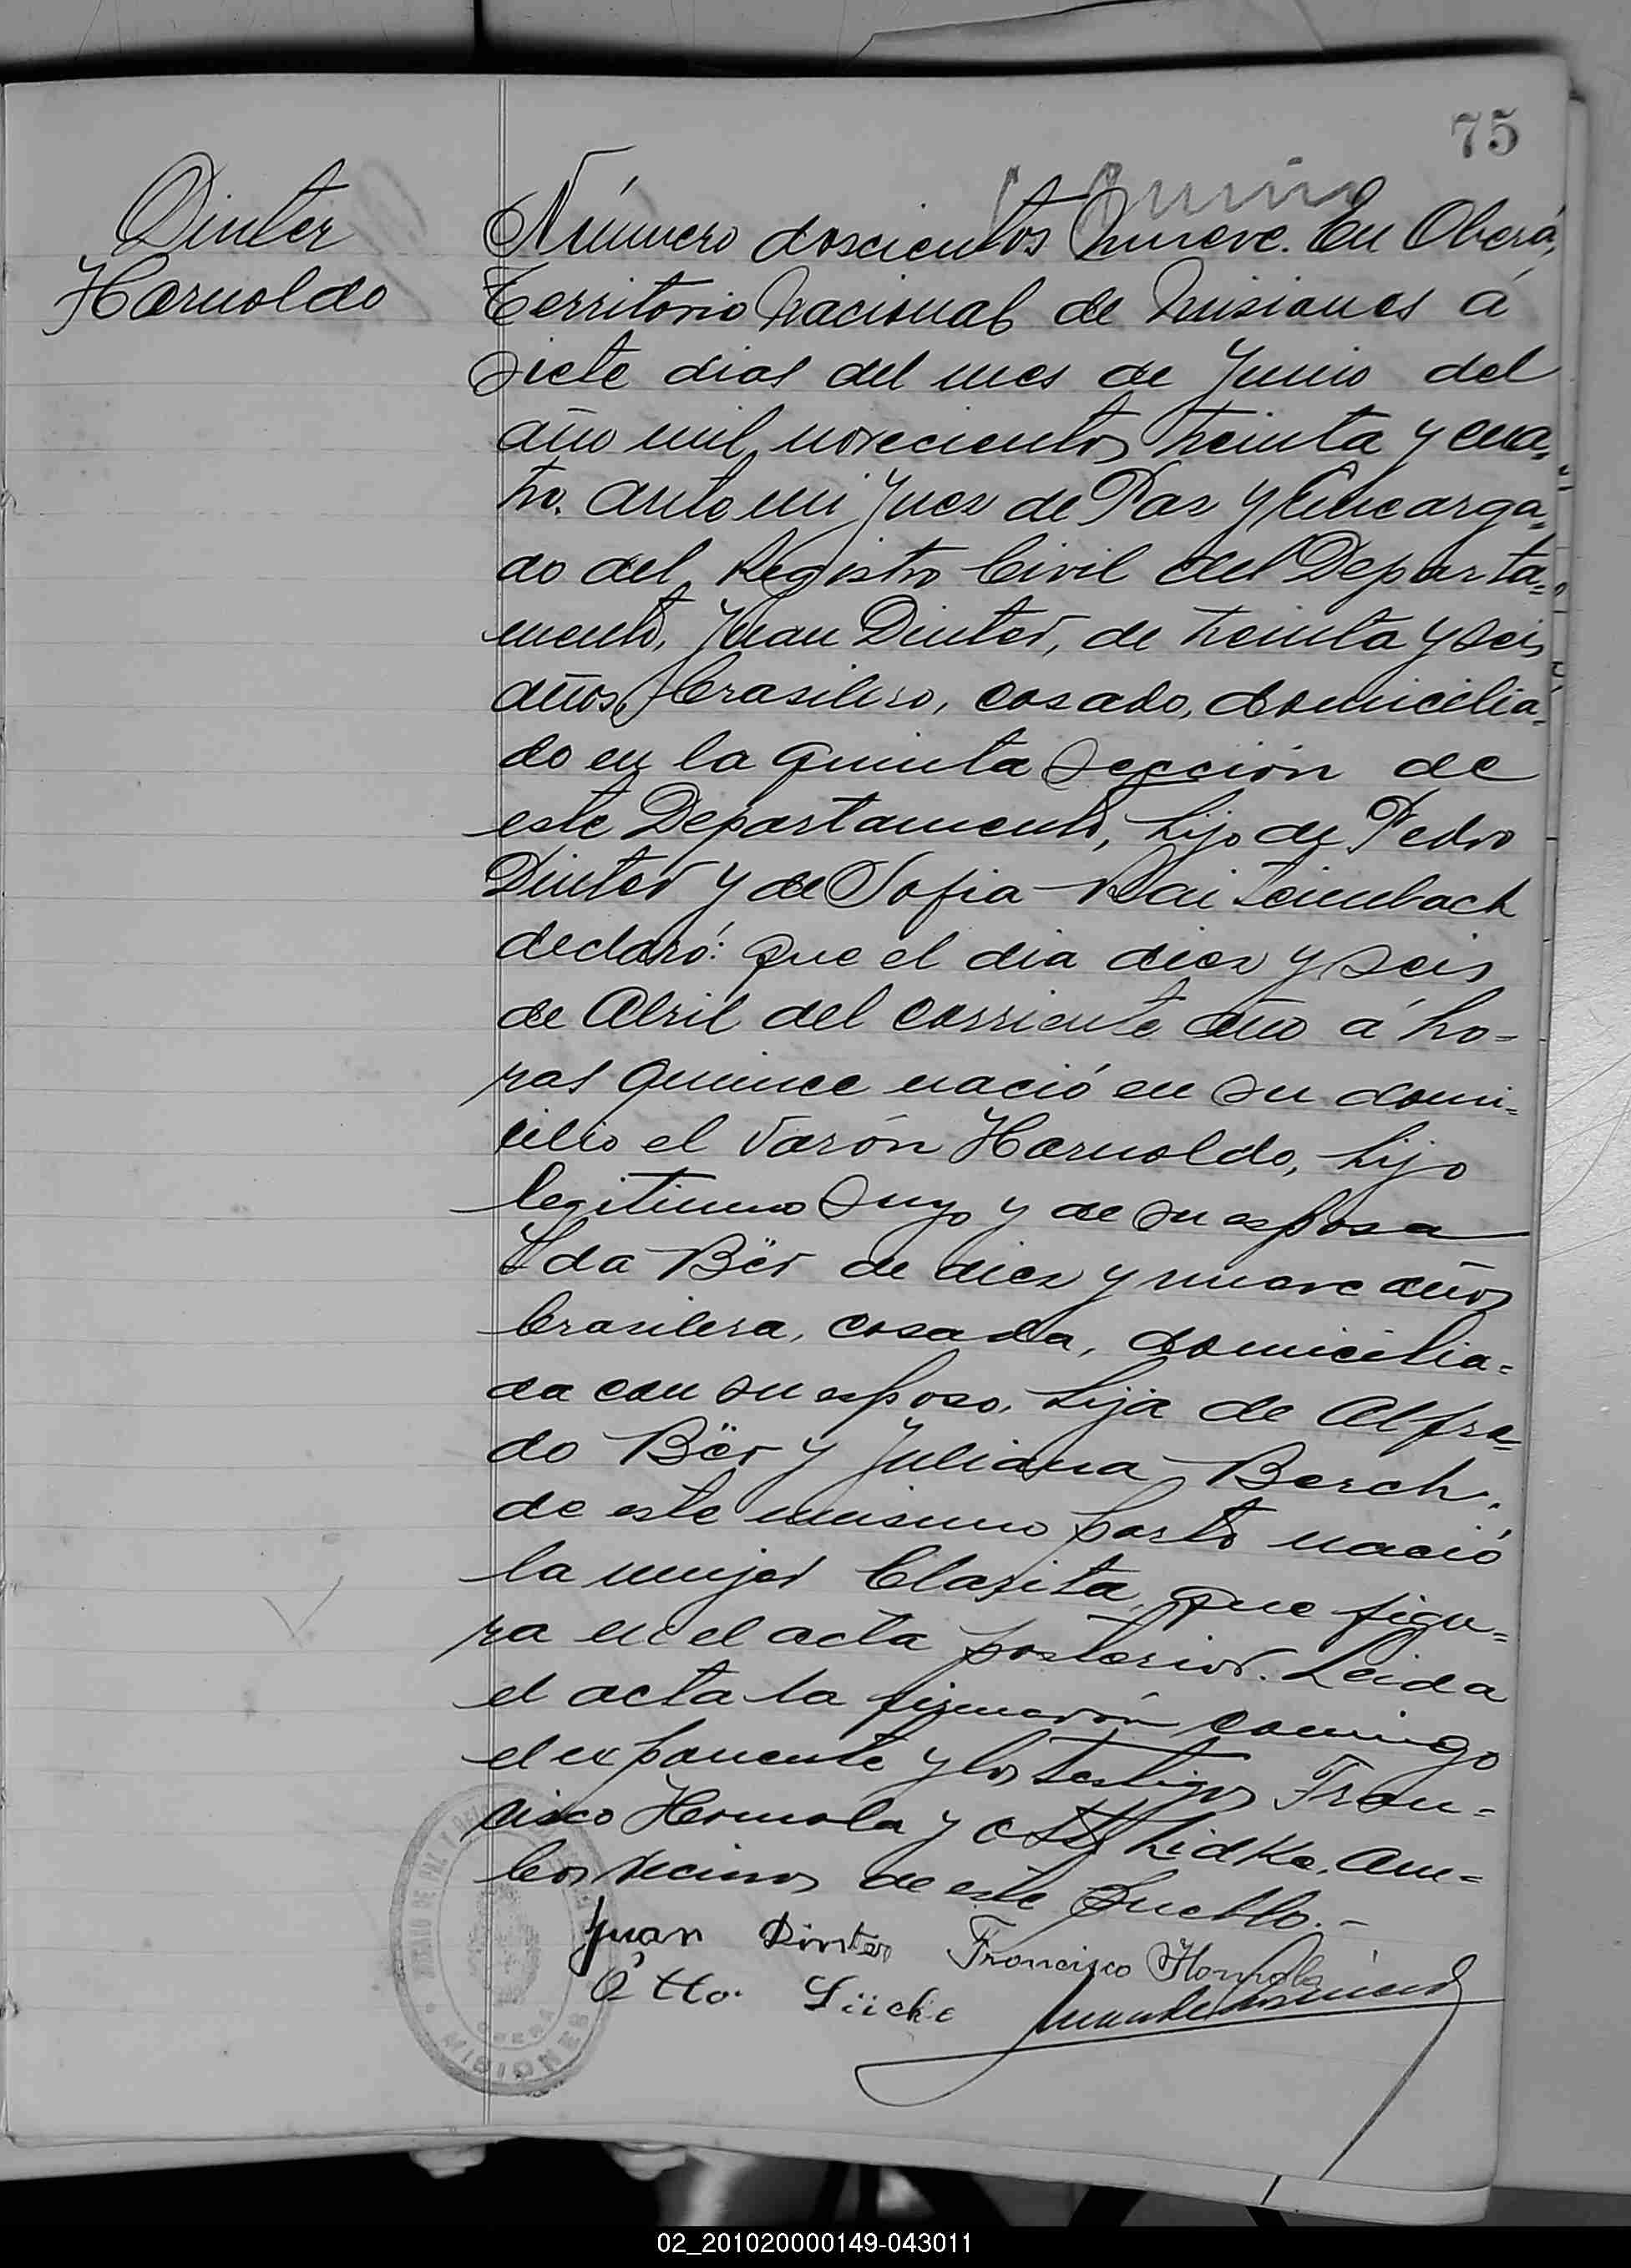 75
Dinter
Harnoldo
Número doscientos nueve. En Oberá,
Territorio Nacional de Misiones á
siete dias del mes de Junio del
año mil novecientos treinta y cua=
tro. ante mi Juez de Paz y Encarga=
do del Registro Civil del Departa=
mento, Juan Dinter, de treinta y seis
años, brasilero, casado, domicilia=
do en la quinta sección de
este Departamento, hijo de Pedro
Dinter y de Sofia
declaró: que el dia diez y seis
de Abril del corriente año á ho=
ras quince nació en su domi=
cilio el varón Harnoldo, hijo
legitimo suyo y de su esposa
Ida Bër de diez y nueve años
brasilera, casada, domicilia=
da con su esposo, hija de Alfre=
do Bër y Juliana Berch.
de este mismo parto nació
la mujer Clarita, que figu=
ra en el acta posterior. Leida
el acta la firmarón conmigo
el exponente y los testigos Fran=
cisco Homola y Lidke, am=
bos vecinos de este pueblo.-
Juan Dinter Francisco Homola
Otto Lücke
MISIONES
02_201020000149-043011